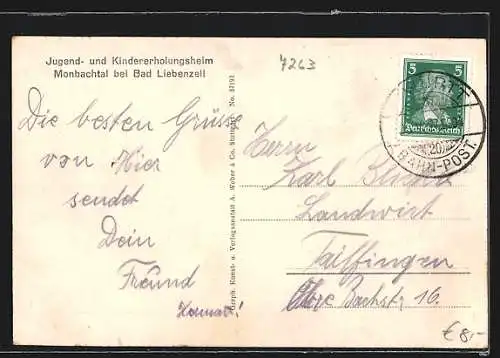 Jugend- und Kindererholungsheim
Monbachtal bei Bad Liebenzell
7263
Die besten Grüsse
von Hier
sendet
Dein
Freund
Herman!
Graph. Kunst- u. Verlagsanstalt A. Weber & Co. Stuttgart No. 57192
5 5
Deutsches Reich
BAHN-POST.
Herrn
Karl
Landwirt
Tailfingen
Obere Bachstr 16.
€ 8,-